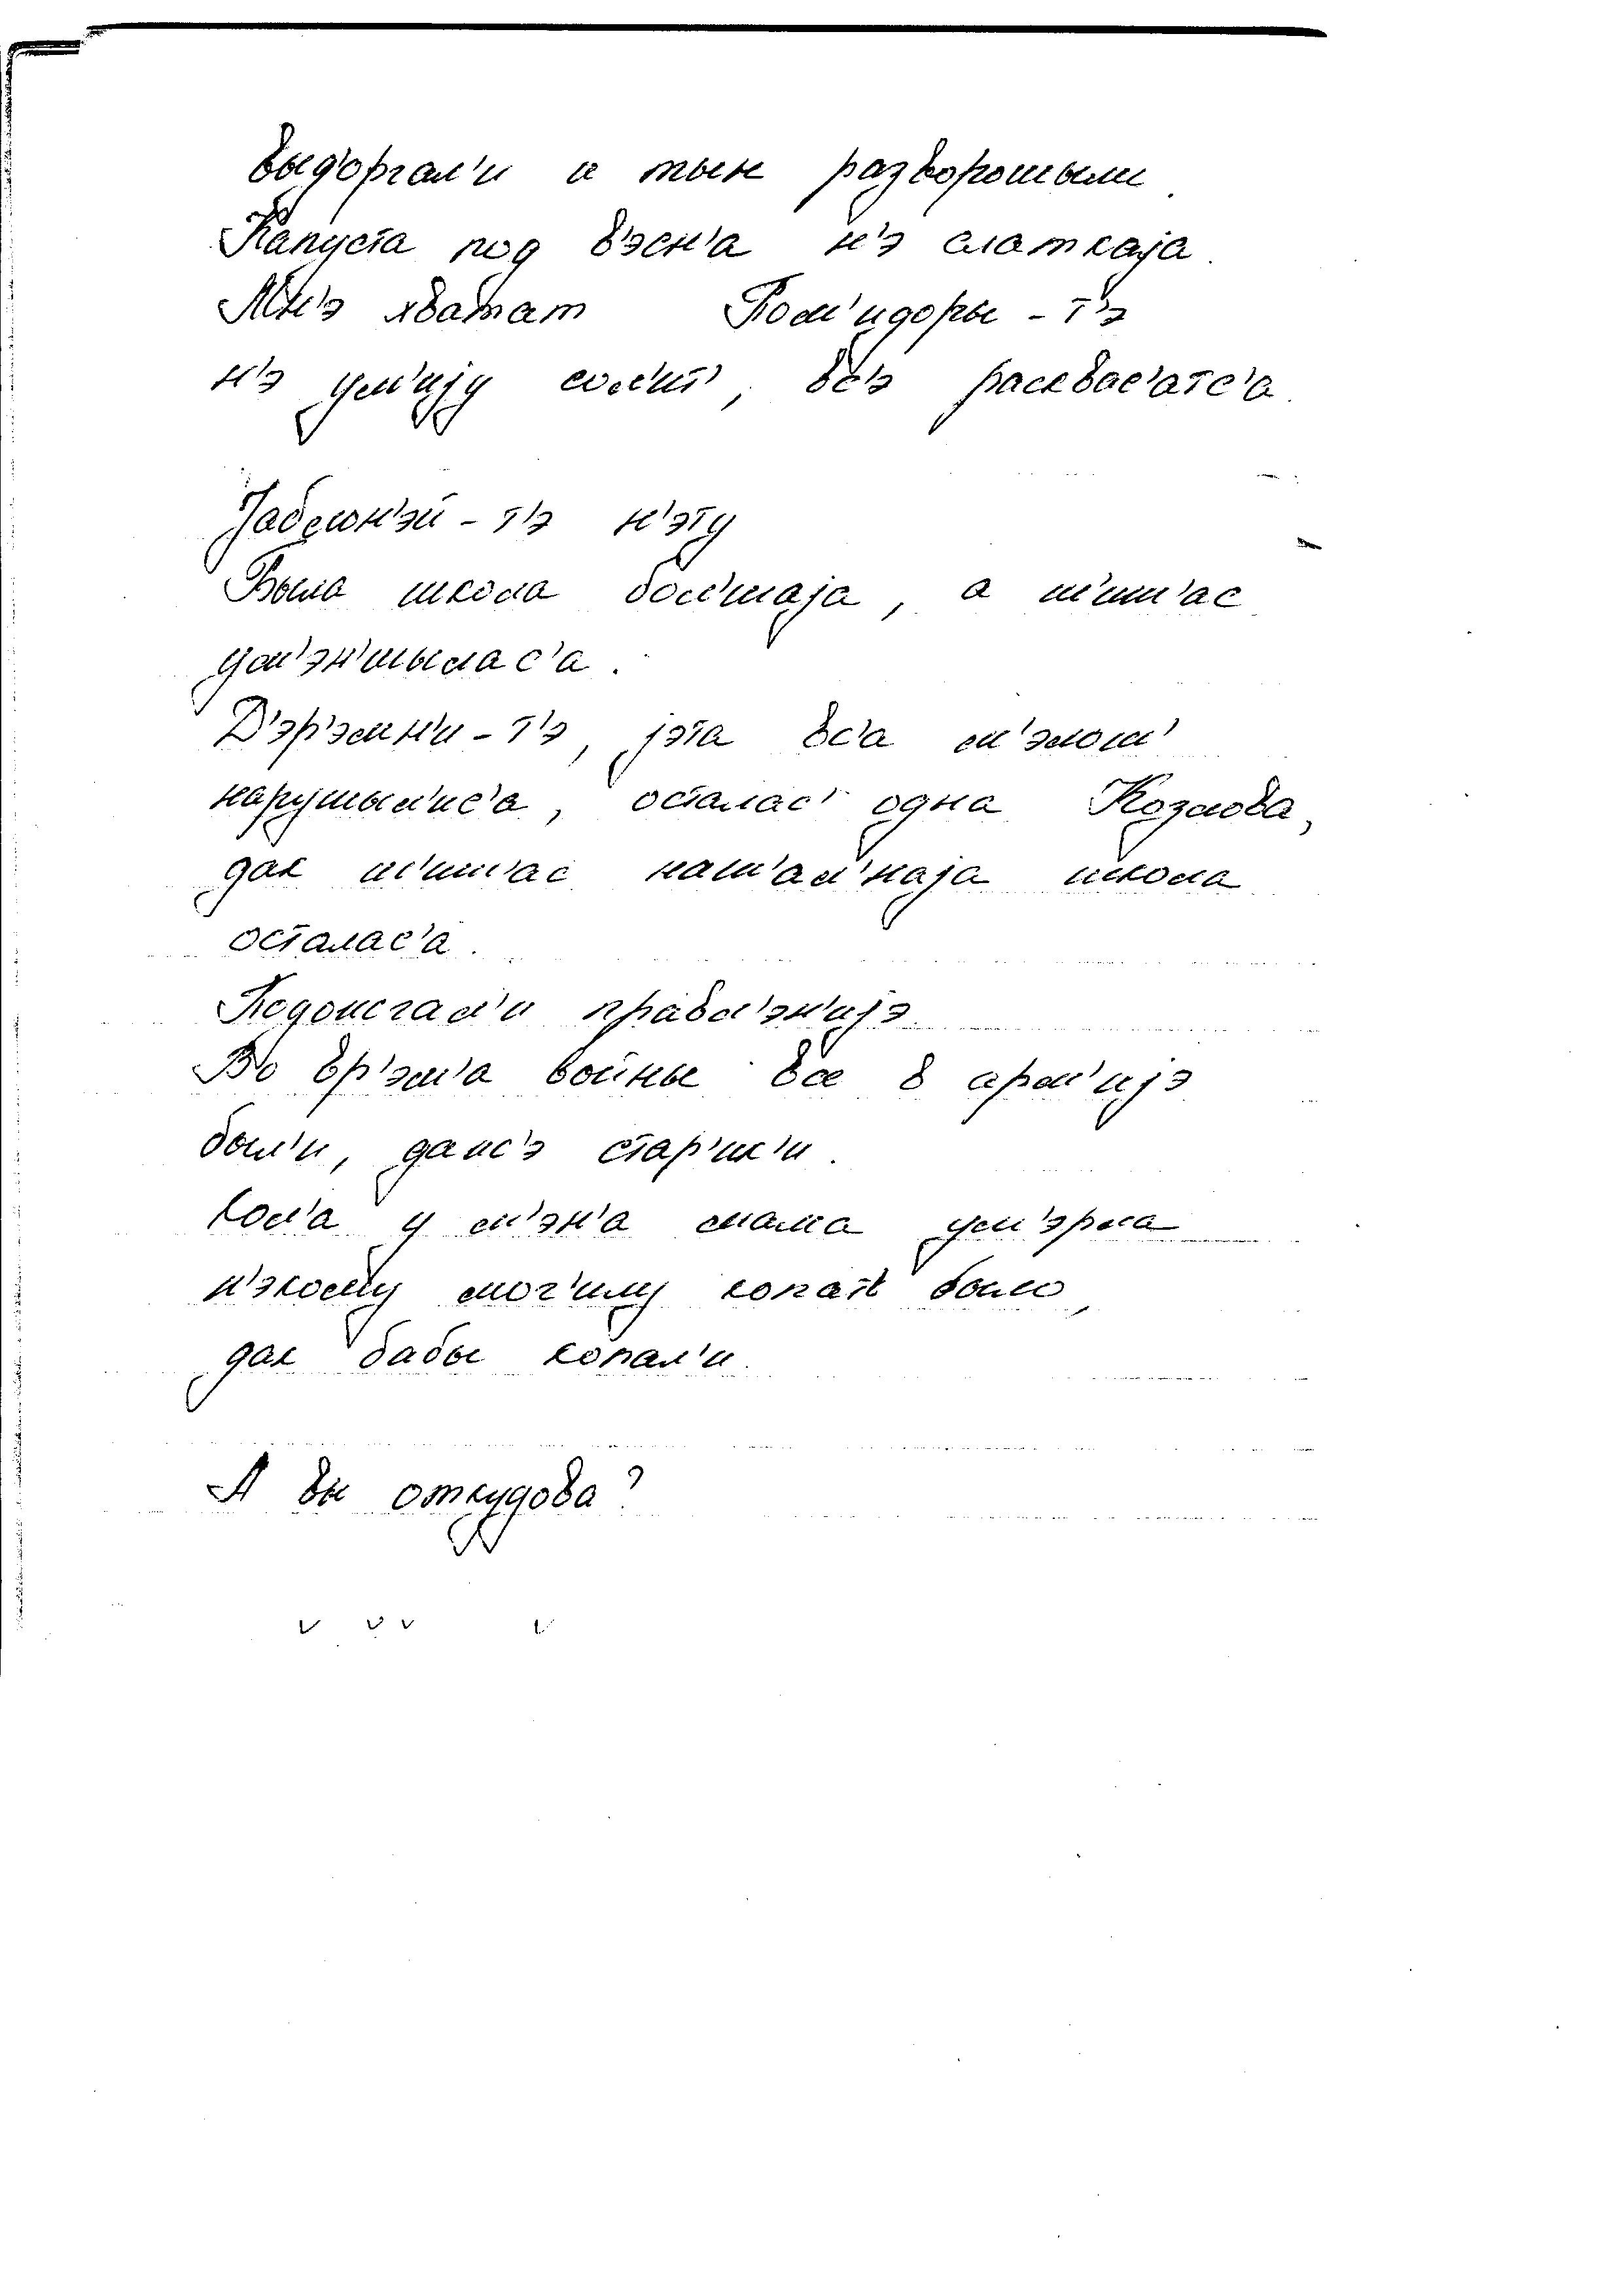 выдоргал'и и тын разворошыли.
Капуста под в'эсн'а н'э слаткаја.
Мн'э хватат Пом'идоры - т'э
н'э ум'иjу сол'ит', вс'э расквас'атс'а.
Јаблон'эй - т'э н'эту
Была школа бол'шаjа, а ш'ишш'ас
ум'эн'шылас'а.
Д'эр'эвн'и - т'э, jэта вс'а м'элош'
нарушыл'ис'а, осталас' одна Козлова,
дак ш'ишш'ас нач'ал'наjа школа
осталас'а.
Подоигал'и правл'эн'иjэ
Во вр'эм'а войны все в арм'иjэ
были, даис'э стар'ик'и.
Кол'а у м'эн'а мама ум'эрла
н'экому мог'илу копат' было,
дак бабы копал'и.
А вы откудова?